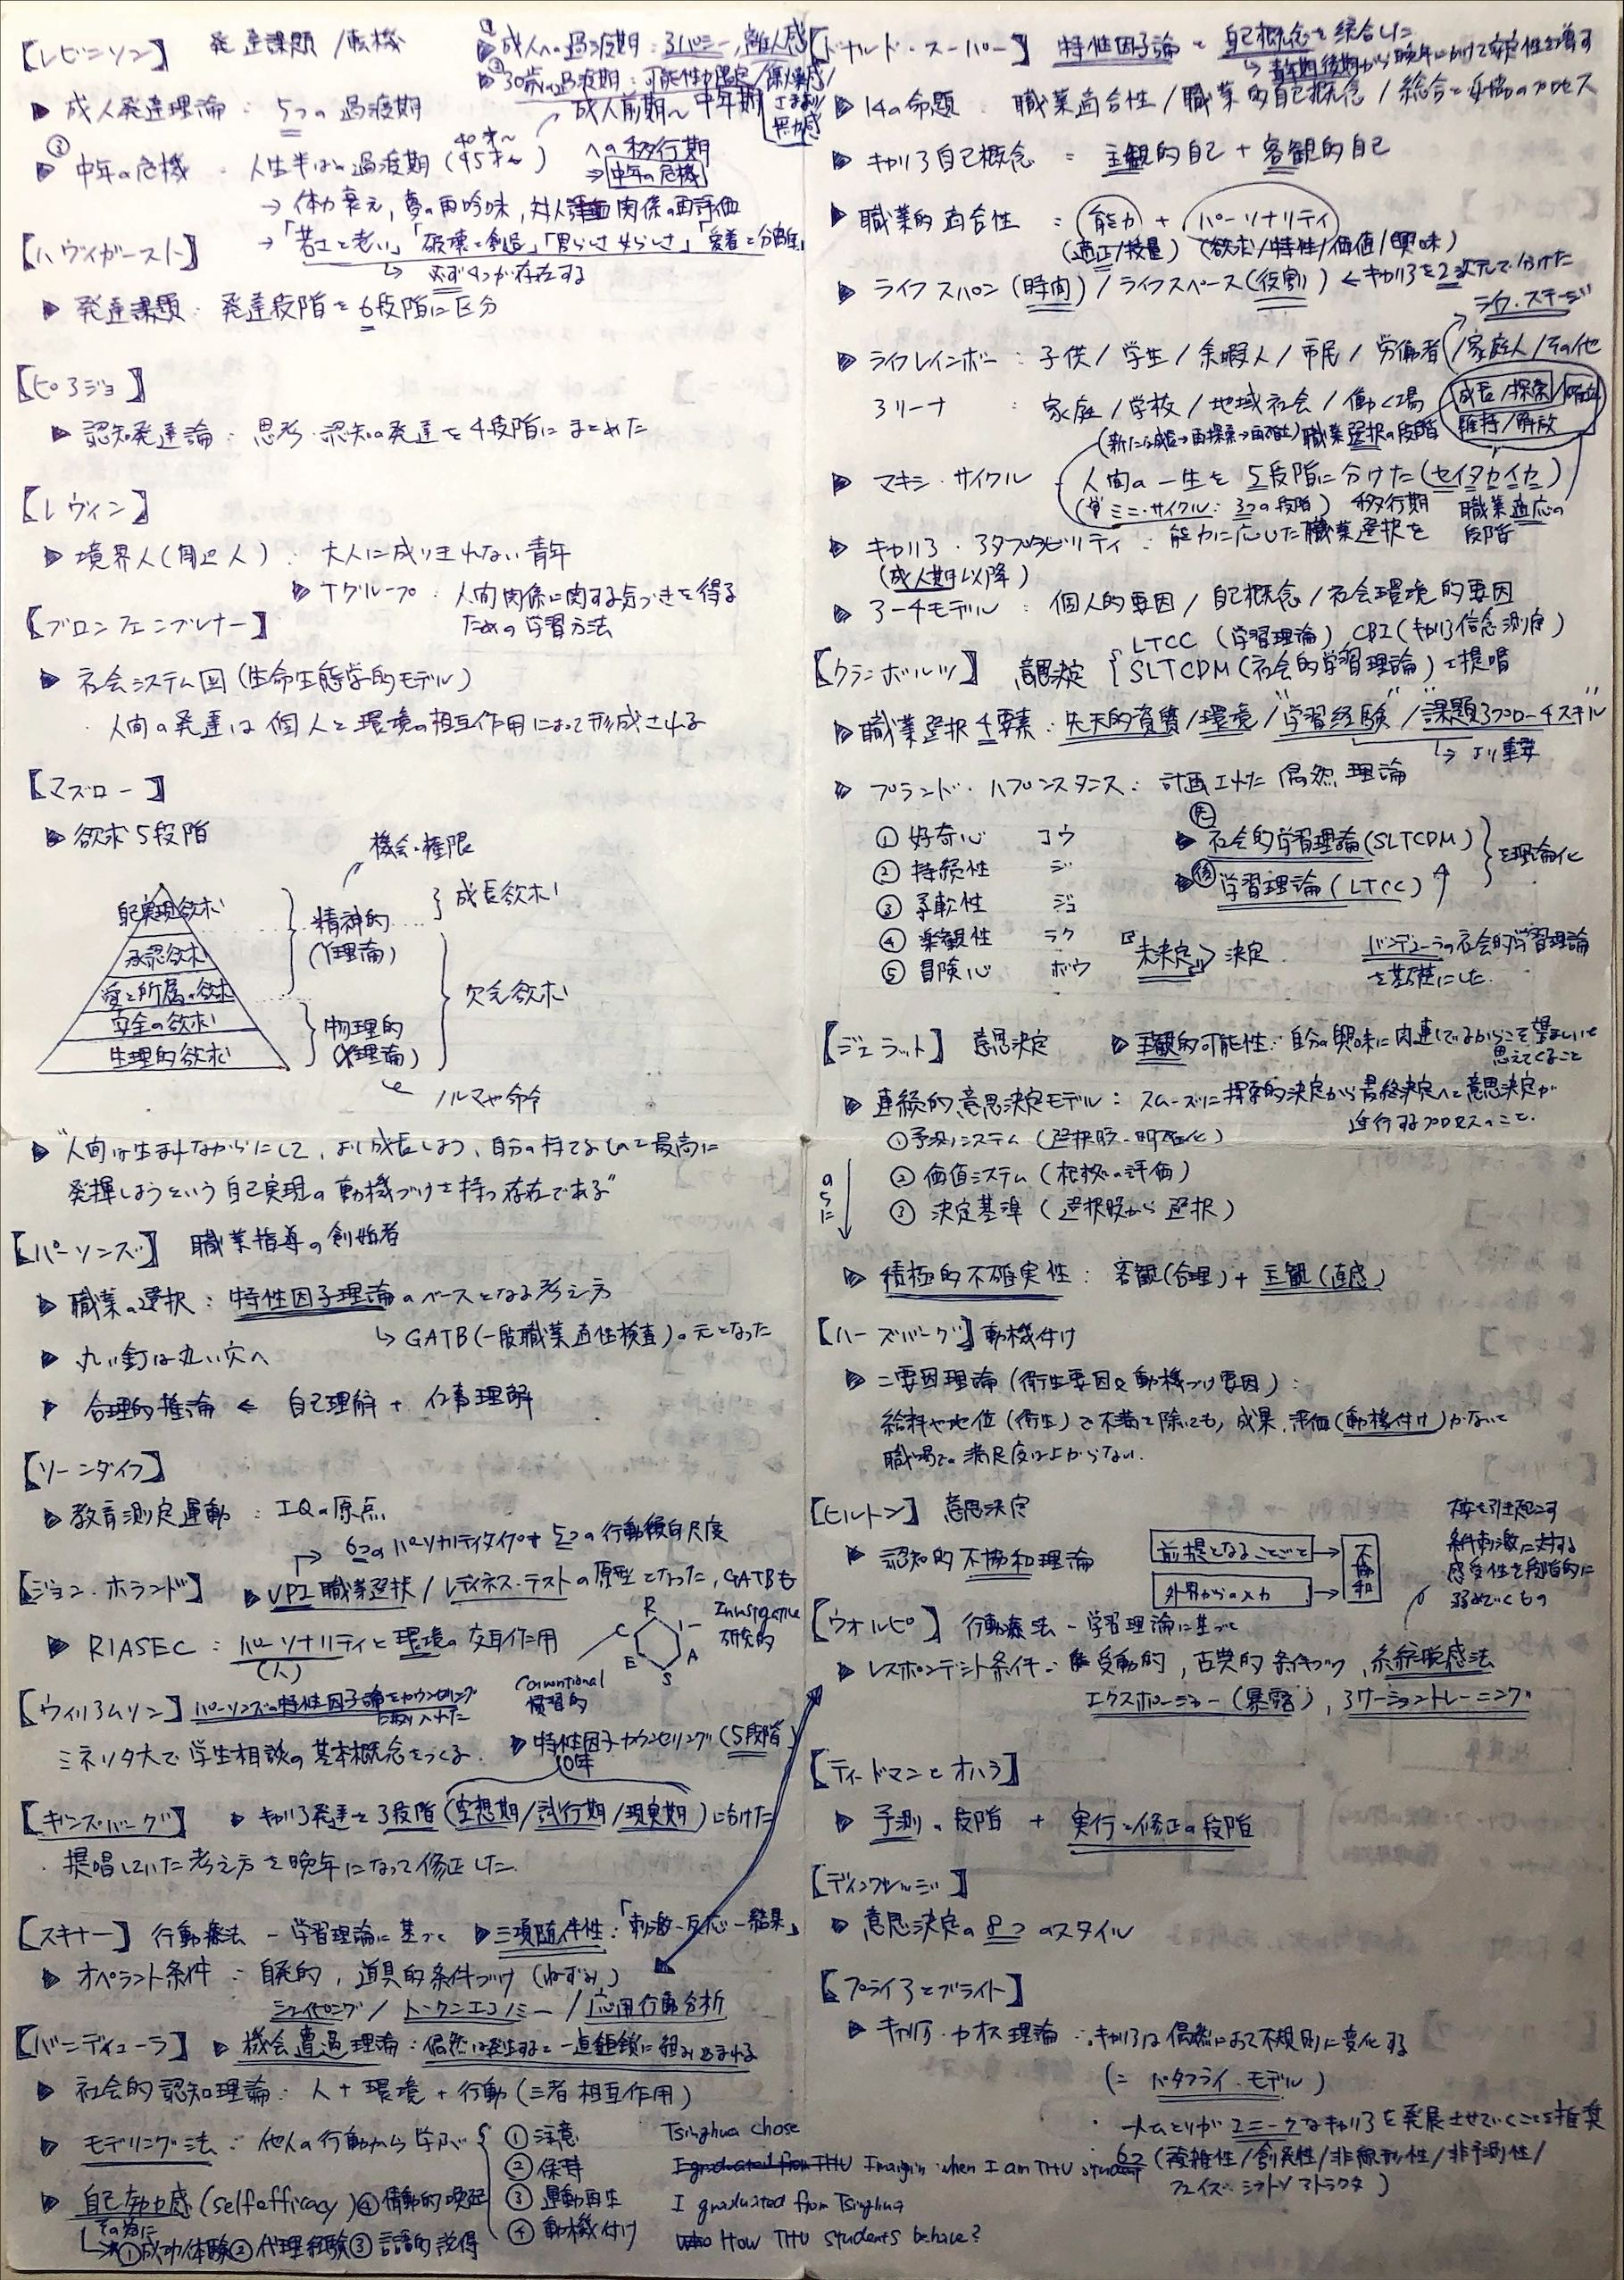 【レビンソン】 発達課題/転機
① 成人への過渡期：アパシー，離人感
② 30歳の過渡期：可能性の限定/焦燥感/さまよい/無力感
▶ 成人発達理論：5つの過渡期
成人前期〜中年期への移行期 ⇒ 中年の危機
③ ▶ 中年の危機：人生半ばの過渡期（40才〜45才）
→ 体力衰え，夢の再吟味，対人関係の再評価
→「若さと老い」「破壊と創造」「男らしさ女らしさ」「愛着と分離」
↳ 必ず4つが存在する
【ハヴィガースト】
▶ 発達課題：発達段階を6段階に区分
【ピアジェ】
▶ 認知発達論：思考・認知の発達を4段階にまとめた
【レヴィン】
▶ 境界人（周辺人）：大人に成りきれない青年
▶ Tグループ：人間関係に関する気づきを得る
ための学習方法
【ブロンフェンブレナー】
▶ 社会システム図（生命生態学的モデル）
・人間の発達は個人と環境の相互作用によって形成される
【マズロー】
▶ 欲求5段階
機会・権限
自己実現欲求
承認欲求
愛と所属の欲求
安全の欲求
生理的欲求
精神的
（Y理論）
物理的
（X理論）
成長欲求
欠乏欲求
ノルマや命令
▶ "人間は生まれながらにして，より成長しよう，自分の持てるものを最高に
発揮しようという自己実現の動機づけを持つ存在である"
【パーソンズ】 職業指導の創始者
▶ 職業の選択：特性因子理論のベースとなる考え方
↳ GATB（一般職業適性検査）の元となった
▶ 丸い釘は丸い穴へ
▶ 合理的推論 ← 自己理解 + 仕事理解
【ソーンダイク】
▶ 教育測定運動：IQの原点
→ 6つのパーソナリティタイプ+5つの行動傾向尺度
【ジョン・ホランド】 ▶ VPI職業選択/レディネス・テストの原型となった，GATBも
▶ RIASEC：パーソナリティ（人）と環境の交互作用
R I A S E C
Investigative 研究的
Conventional 慣習的
【ウィリアムソン】 パーソンズの特性因子論をカウンセリングに取り入れた
ミネソタ大で学生相談の基本概念をつくる．
▶ 特性因子カウンセリング（5段階）
10年
【ギンズバーグ】 ▶ キャリア発達を3段階（空想期/試行期/現実期）に分けた
・提唱していた考え方を晩年になって修正した．
【スキナー】 行動療法 − 学習理論に基づく ▶ 三項随伴性：「刺激−反応−結果」
▶ オペラント条件：自発的，道具的条件づけ（ねずみ）
シェイピング/トークンエコノミー/応用行動分析
【バンデューラ】 ▶ 機会遭遇理論：偶然は発生すると一連鎖に組み込まれる
▶ 社会的認知理論：人+環境+行動（三者相互作用）
▶ モデリング法：他人の行動から学ぶ
① 注意
② 保持
③ 運動再生
④ 動機付け
▶ 自己効力感（self efficacy）④情動的喚起
その為に
①成功体験②代理経験③言語的説得
Tsinghua chose
I graduated from THU Imagin when I am THU student
I graduated from Tsinghua
Who How THU students behave?
【ドナルド・スーパー】 特性因子論と自己概念を統合した
↳ 青年期後期から晩年にかけて安定性を増す
▶ 14の命題：職業適合性/職業的自己概念/統合と妥協のプロセス
▶ キャリア自己概念 = 主観的自己+客観的自己
▶ 職業的適合性 = 能力 + パーソナリティ
（適正/技量）（欲求/特性/価値/興味）
▶ ライフスパン（時間）/ライフスペース（役割）← キャリアを2次元で分けた
ライフ・ステージ
▶ ライフレインボー：子供/学生/余暇人/市民/労働者/家庭人/その他
アリーナ：家庭/学校/地域社会/働く場
成長/探索/確立
維持/解放
（新たな成長→再探索→再確立）職業選択の段階
▶ マキシ・サイクル − 人間の一生を5段階に分けた（セイタカイカ）
（ミニ・サイクル：3つの段階）移行期 職業適応の段階
▶ キャリア・アダプタビリティ：能力に応じた職業選択を
（成人期以降）
▶ アーチモデル：個人的要因/自己概念/社会環境的要因
【クランボルツ】 意思決定
LTCC（学習理論）CBI（キャリア信念測定）
SLTCDM（社会的学習理論）を提唱
▶ 職業選択4要素：先天的資質/環境/"学習経験"/"課題アプローチスキル"
↳ より重要
▶ プランド・ハプンスタンス：計画された偶然理論
① 好奇心 コウ
② 持続性 ジ
③ 柔軟性 ジュ
④ 楽観性 ラク
⑤ 冒険心 ボウ
先 ▶ 社会的学習理論（SLTCDM）
後 ▶ 学習理論（LTCC）
を理論化
『未決定』> 決定
バンデューラの社会的学習理論
を基礎にした．
【ジェラット】 意思決定 ▶ 主観的可能性：自分の興味に関連しているからこそ望ましいと
思えてくること
▶ 連続的意思決定モデル：スムーズに探索的決定から最終決定へと意思決定が
進行するプロセスのこと．
①予測システム（選択肢の明確化）
② 価値システム（根拠の評価）
③ 決定基準（選択肢から選択）
のちに
▶ 積極的不確実性：客観（合理）+ 主観（直感）
【ハーズバーグ】動機付け
▶ 二要因理論（衛生要因&動機づけ要因）：
給料や地位（衛生）で不満を除いても，成果，評価（動機付け）がないと
職場での満足度は上がらない．
【ヒルトン】 意思決定
▶ 認知的不協和理論
前提となることごと
外界からの入力
不協和
【ウォルピ】 行動療法 − 学習理論に基づく
を引き起こす
刺激に対する
感受性を段階的に
弱めていくもの
▶ レスポンデント条件：受動的，古典的条件づけ，系統脱感法
エクスポージャー（暴露），アサーショントレーニング
【ティードマンとオハラ】
▶ 予測の段階 + 実行と修正の段階
【ディンクレッジ】
▶ 意思決定の8つのスタイル
【プライアとブライト】
▶ キャリア・カオス理論：キャリアは偶然によって不規則に変化する
（= バタフライ・モデル）
・一人ひとりがユニークなキャリアを発展させていくことを推奨
6つ（複雑性/創発性/非線形性/非予測性/
フェイズ・シフト/アトラクタ）